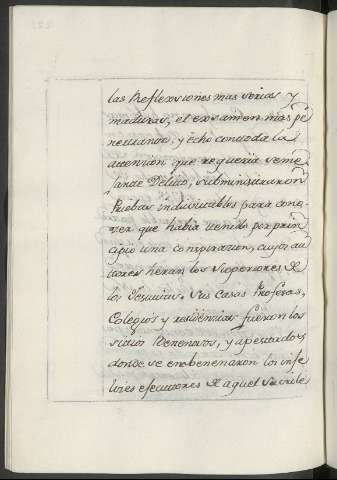 las Reflexsiones mas serias y
maduras, el exsamen mas pe
netrante, y echo con toda la
attencion que requeria seme
jante Delito, subministraron
Pruebas indubitables para cono-
cer que habia tenido por prin
cipio una conspirazion, cuyos au
tores heran los Superiores de
los Jesuitas. Sus Casas Profesas,
Colegios y residencias fueron los
sitios Venenosos, y apestados
donde se enbenenaron los infe
lizes ejecutores de aquel Sacrile